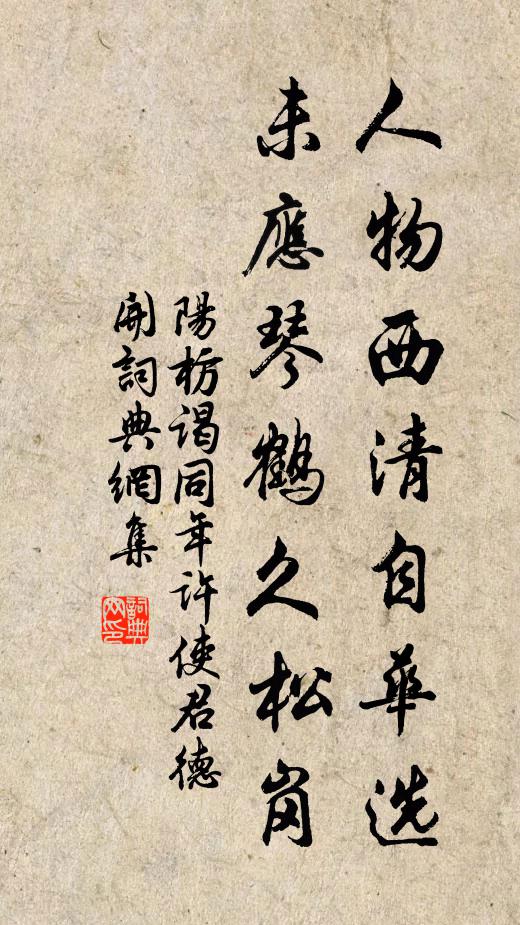 人物西清自華选
未應琴鶴久松岗
陽枋谒同年许使君德
開詞典網集
詞典
网印